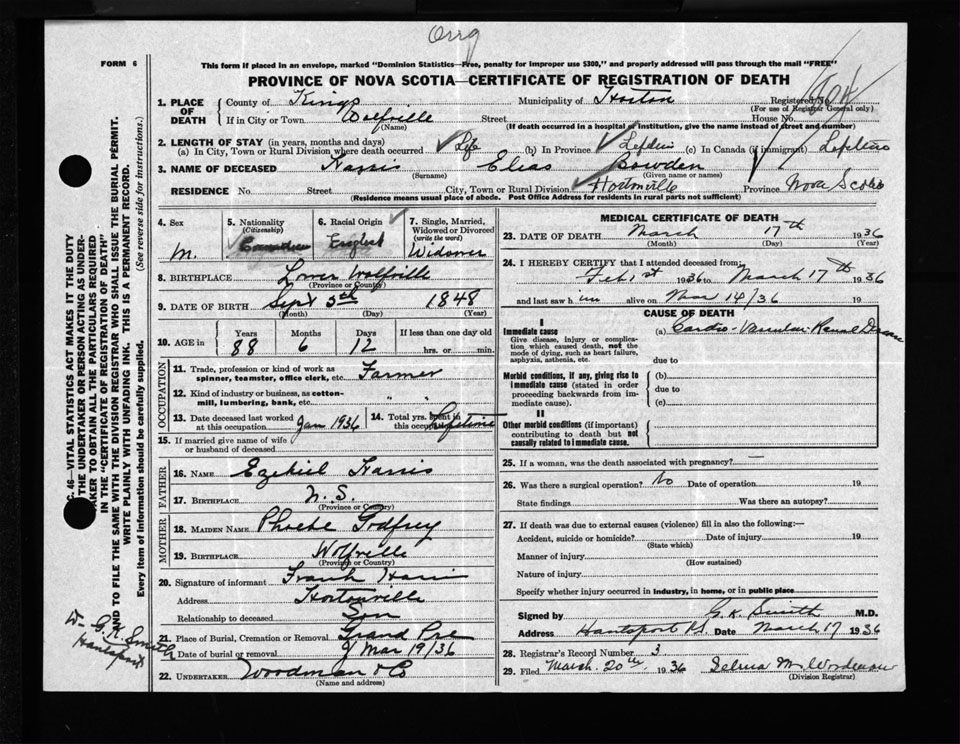 Orig
FORM 6
This form if placed in an envelope, marked "Dominion Statistics—Free, penalty for improper use $300," and properly addressed will pass through the mail "FREE"
PROVINCE OF NOVA SCOTIA—CERTIFICATE OF REGISTRATION OF DEATH
1. PLACE OF DEATH
County of Kings Municipality of Horton Registered No.
(For use of Registrar General only)
If in City or Town Wolfville Street House No.
(Name) (If death occurred in a hospital or institution, give the name instead of street and number)
2. LENGTH OF STAY (in years, months and days)
(a) In City, Town or Rural Division where death occurred Life (b) In Province Lifetime (c) In Canada (if immigrant) Lifetime
3. NAME OF DECEASED Harris Elias Bowden
(Surname) (Given name or names)
RESIDENCE No. Street City, Town or Rural Division Hortonville Province Nova Scotia
(Residence means usual place of abode. Post Office Address for residents in rural parts not sufficient)
4. Sex M.
5. Nationality (Citizenship) Canadian
6. Racial Origin English
7. Single, Married, Widowed or Divorced (write the word) Widower
8. BIRTHPLACE Lower Wolfville
(Province or Country)
9. DATE OF BIRTH Sept 5th 1848
(Month) (Day) (Year)
10. AGE in Years 88 Months 6 Days 12 If less than one day old hrs. or min.
OCCUPATION
11. Trade, profession or kind of work as spinner, teamster, office clerk, etc. Farmer
12. Kind of industry or business, as cotton-mill, lumbering, bank, etc. " "
13. Date deceased last worked at this occupation Jan 1936
14. Total yrs. spent in this occupation Lifetime
15. If married give name of wife or husband of deceased
FATHER
16. NAME Ezekiel Harris
17. BIRTHPLACE N. S.
(Province or Country)
MOTHER
18. MAIDEN NAME Phoebe Godfrey
19. BIRTHPLACE Wolfville
(Province or Country)
20. Signature of informant Frank Harris
Address Hortonville
Relationship to deceased Son
21. Place of Burial, Cremation or Removal Grand Pre
Date of burial or removal Mar 19/36
22. UNDERTAKER Woodman & Co
(Name and address)
MEDICAL CERTIFICATE OF DEATH
23. DATE OF DEATH March 17th 1936
(Month) (Day) (Year)
24. I HEREBY CERTIFY that I attended deceased from
Feb 1st 1936 to March 17th 1936
and last saw him alive on Mar 14/36 19
CAUSE OF DEATH
I
Immediate cause
Give disease, injury or complication which caused death, not the mode of dying, such as heart failure, asphyxia, asthenia, etc.
(a) Cardio-Vascular-Renal Disease
due to
Morbid conditions, if any, giving rise to immediate cause (stated in order proceeding backwards from immediate cause).
(b)
due to
(c)
II
Other morbid conditions (if important) contributing to death but not causally related to immediate cause.
25. If a woman, was the death associated with pregnancy? —
26. Was there a surgical operation? No Date of operation 19
State findings Was there an autopsy?
27. If death was due to external causes (violence) fill in also the following:—
Accident, suicide or homicide? Date of injury 19
(State which)
Manner of injury
(How sustained)
Nature of injury
Specify whether injury occurred in industry, in home, or in public place
Signed by G. K. Smith M.D.
Address Hantsport N.S. Date March 17 1936
28. Registrar's Record Number 3
29. Filed March 20th 1936 Selma M. Woodman
(Division Registrar)
C. 46—VITAL STATISTICS ACT MAKES IT THE DUTY
THE UNDERTAKER OR PERSON ACTING AS UNDER-
TAKER TO OBTAIN ALL THE PARTICULARS REQUIRED
IN THE "CERTIFICATE OF REGISTRATION OF DEATH"
AND TO FILE THE SAME WITH THE DIVISION REGISTRAR WHO SHALL ISSUE THE BURIAL PERMIT.
WRITE PLAINLY WITH UNFADING INK. THIS IS A PERMANENT RECORD.
Every item of information should be carefully supplied. (See reverse side for instructions.)
G. K. Smith
Hantsport